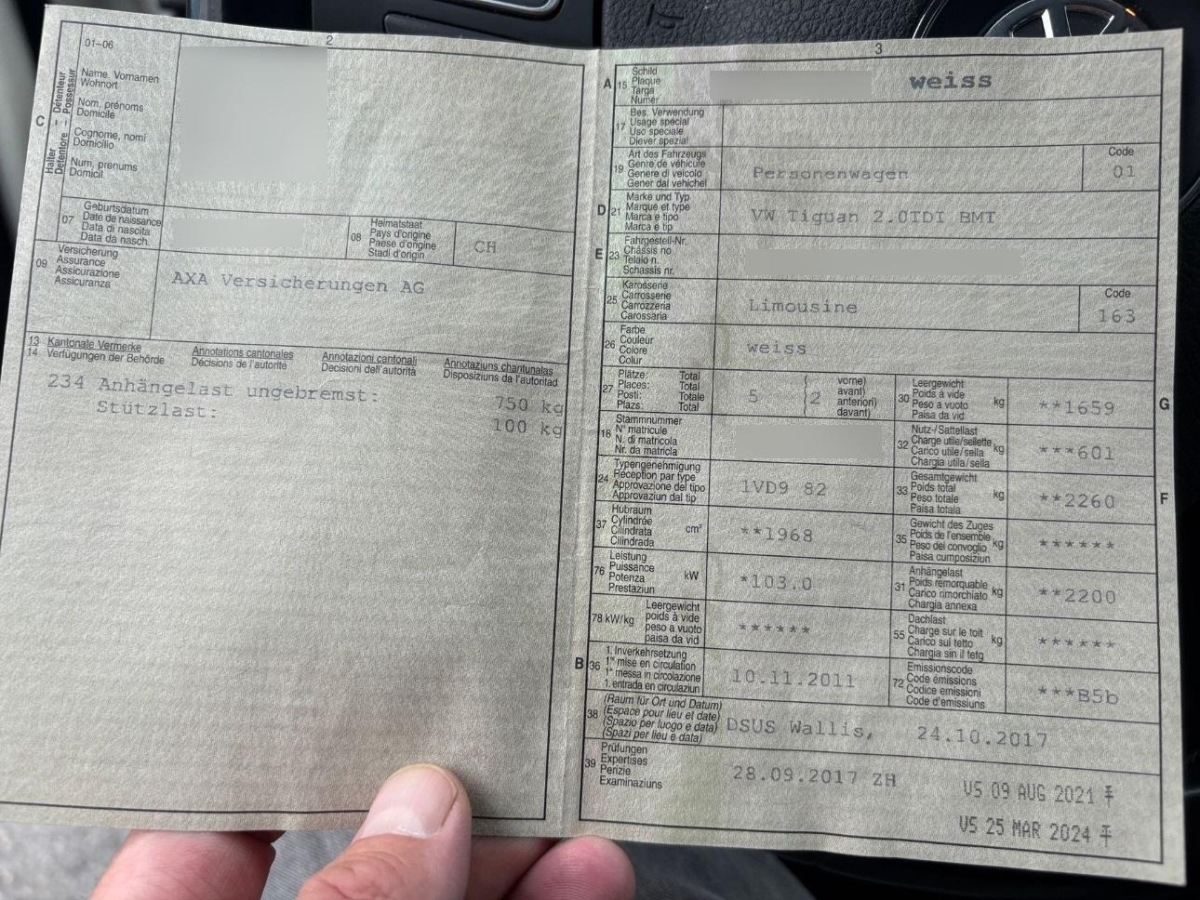 2
01-06
C
Halter Détenteur
Detentore Possessur
Name, Vornamen
Wohnort
Nom, prénoms
Domicile
Cognome, nomi
Domicilio
Num, prenums
Domicil
07
Geburtsdatum
Date de naissance
Data di nascita
Data da nasch.
08
Heimatstaat
Pays d'origine
Paese d'origine
Stadi d'origin
CH
09
Versicherung
Assurance
Assicurazione
Assicuranza
AXA Versicherungen AG
13 Kantonale Vermerke
14 Verfügungen der Behörde
Annotations cantonales
Décisions de l'autorité
Annotazioni cantonali
Decisioni dell'autorità
Annotaziuns chantunalas
Disposiziuns da l'autoritad
234 Anhängelast ungebremst: 750 kg
Stützlast: 100 kg
3
A
15
Schild
Plaque
Targa
Numer
weiss
17
Bes. Verwendung
Usage spécial
Uso speciale
Diever spezial
19
Art des Fahrzeugs
Genre de véhicule
Genere di veicolo
Gener dal vehichel
Personenwagen
Code
01
D
21
Marke und Typ
Marque et type
Marca e tipo
Marca e tip
VW Tiguan 2.0TDI BMT
E
23
Fahrgestell-Nr.
Châssis no
Telaio n.
Schassis nr.
25
Karosserie
Carrosserie
Carrozzeria
Carossaria
Limousine
Code
163
26
Farbe
Couleur
Colore
Colur
weiss
27
Plätze: Total
Places: Total
Posti: Totale
Plazs: Total
5
(2
vorne)
avant)
anteriori)
davant)
30
Leergewicht
Poids à vide
Peso a vuoto
Paisa da vid
kg
**1659
G
18
Stammnummer
N° matricule
N. di matricola
Nr. da matricla
32
Nutz-/Sattellast
Charge utile/sellette
Carico utile/sella
Chargia utila/sella
kg
***601
24
Typengenehmigung
Réception par type
Approvazione del tipo
Approvaziun dal tip
1VD9 82
33
Gesamtgewicht
Poids total
Peso totale
Paisa totala
kg
**2260
F
37
Hubraum
Cylindrée
Cilindrata
Cilindrada
cm³
**1968
35
Gewicht des Zuges
Poids de l'ensemble
Peso del convoglio
Paisa cumposiziun
kg
******
76
Leistung
Puissance
Potenza
Prestaziun
kW
*103.0
31
Anhängelast
Poids remorquable
Carico rimorchiato
Chargia annexa
kg
**2200
78 kW/kg
Leergewicht
poids à vide
peso a vuoto
paisa da vid
******
55
Dachlast
Charge sur le toit
Carico sul tetto
Chargia sin il tetg
kg
******
B
36
1. Inverkehrsetzung
1re mise en circulation
1a messa in circolazione
1. entrada en circulaziun
10.11.2011
72
Emissionscode
Code émissions
Codice emissioni
Code d'emissiuns
***B5b
38
(Raum für Ort und Datum)
(Espace pour lieu et date)
(Spazio per luogo e data)
(Spazi per lieu e data)
DSUS Wallis, 24.10.2017
39
Prüfungen
Expertises
Perizie
Examinaziuns
28.09.2017 ZH
VS 09 AUG 2021
VS 25 MAR 2024